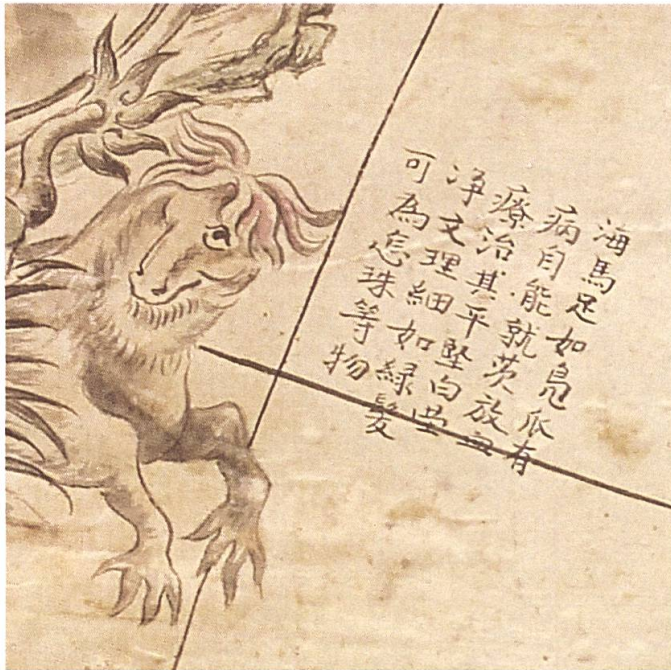 海馬足如鳧爪有
病自能就茨放血
療治其平堅白莹
浄文理細如緑髮
可為怠珠等物